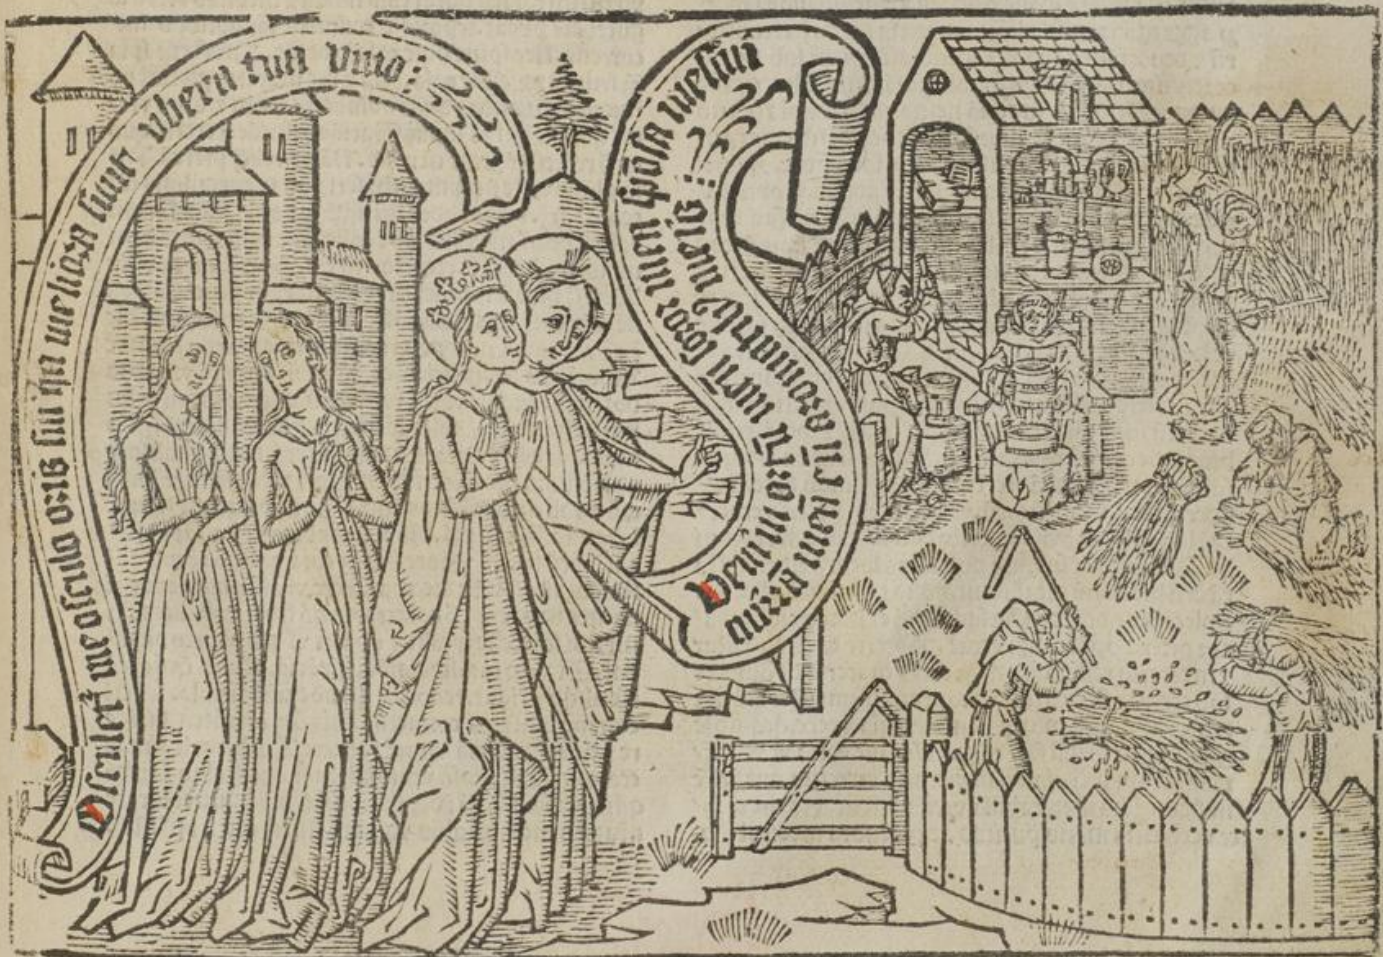 Osculet᷑ me osculo oris sui qꝛ meliora sunt vbera tua vino:
Veni in ortū meū soror mea spōsa messui
mirrā meā cū aromatibꝰ meis: